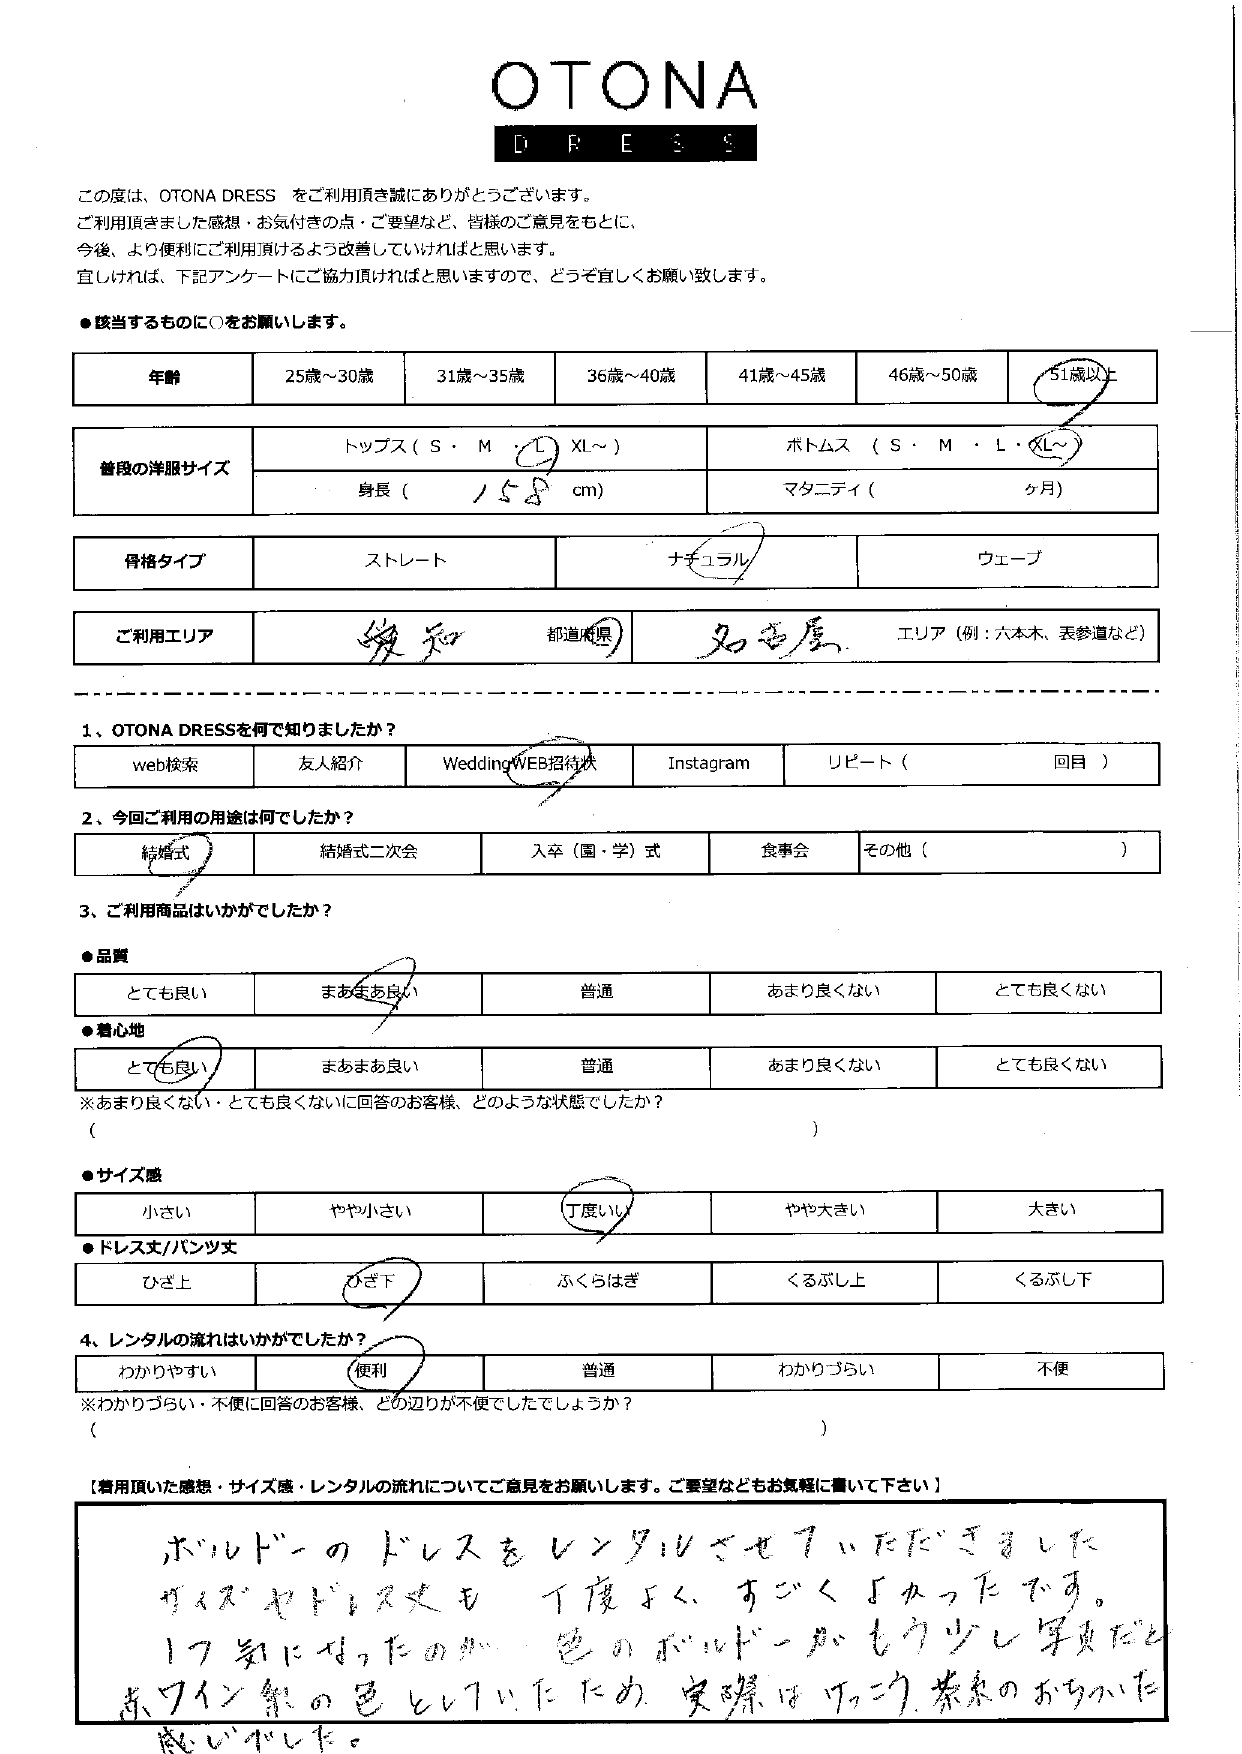 OTONA
DRESS
この度は、OTONA DRESS　をご利用頂き誠にありがとうございます。
ご利用頂きました感想・お気付きの点・ご要望など、皆様のご意見をもとに、
今後、より便利にご利用頂けるよう改善していければと思います。
宜しければ、下記アンケートにご協力頂ければと思いますので、どうぞ宜しくお願い致します。
●該当するものに○をお願いします。
年齢 25歳～30歳 31歳～35歳 36歳～40歳 41歳～45歳 46歳～50歳 51歳以上
普段の洋服サイズ トップス ( S ・ M ・ L XL～ ) ボトムス ( S ・ M ・ L ・ XL～ )
身長 ( 158 cm) マタニティ ( ヶ月)
骨格タイプ ストレート ナチュラル ウェーブ
ご利用エリア 愛知 都道府県 名古屋 エリア（例：六本木、表参道など）
1、OTONA DRESSを何で知りましたか？
web検索 友人紹介 WeddingWEB招待状 Instagram リピート ( 回目 )
2、今回ご利用の用途は何でしたか？
結婚式 結婚式二次会 入卒（園・学）式 食事会 その他 ( )
3、ご利用商品はいかがでしたか？
●品質
とても良い まあまあ良い 普通 あまり良くない とても良くない
●着心地
とても良い まあまあ良い 普通 あまり良くない とても良くない
※あまり良くない・とても良くないに回答のお客様、どのような状態でしたか？
( )
●サイズ感
小さい やや小さい 丁度いい やや大きい 大きい
●ドレス丈/パンツ丈
ひざ上 ひざ下 ふくらはぎ くるぶし上 くるぶし下
4、レンタルの流れはいかがでしたか？
わかりやすい 便利 普通 わかりづらい 不便
※わかりづらい・不便に回答のお客様、どの辺りが不便でしたでしょうか？
( )
【着用頂いた感想・サイズ感・レンタルの流れについてご意見をお願いします。ご要望などもお気軽に書いて下さい】
ボルドーのドレスをレンタルさせていただきました
サイズやドレス丈も 丁度よく、すごくよかったです。
1つ気になったのが 色のボルドーがもう少し写真だと
赤ワイン系の色としていたため 実際はけっこう、茶系のおちついた
感じでした。